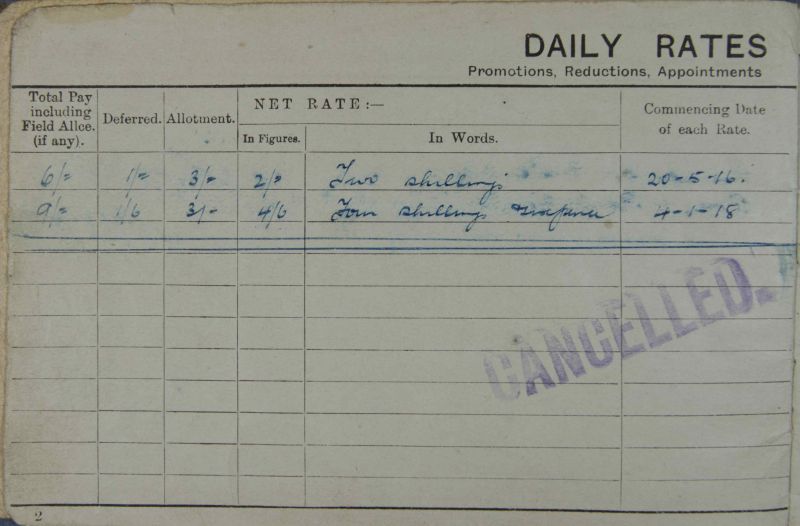 DAILY RATES
Promotions, Reductions, Appointments
Total Pay including Field Allce. (if any). Deferred. Allotment. NET RATE:— In Figures. In Words. Commencing Date of each Rate.
6/= 1/= 3/= 2/= Two shillings 20-5-16.
9/= 1/6 3/- 4/6 Four shillings sixpence 4-1-18
CANCELLED.
2